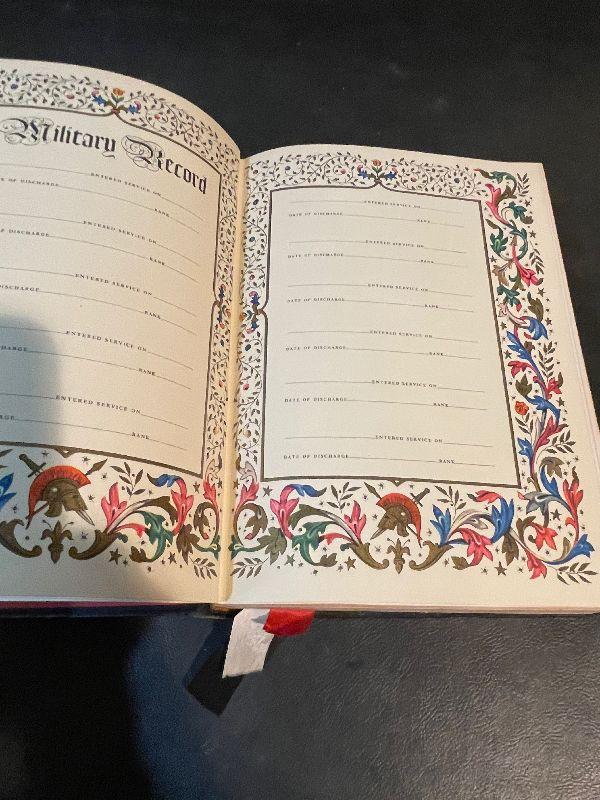 Military Record
ENTERED SERVICE ON
OF DISCHARGE RANK
ENTERED SERVICE ON
OF DISCHARGE RANK
ENTERED SERVICE ON
DISCHARGE RANK
ENTERED SERVICE ON
RANK
ENTERED SERVICE ON
RANK
ENTERED SERVICE ON
DATE OF DISCHARGE RANK
ENTERED SERVICE ON
DATE OF DISCHARGE RANK
ENTERED SERVICE ON
DATE OF DISCHARGE RANK
ENTERED SERVICE ON
DATE OF DISCHARGE RANK
ENTERED SERVICE ON
DATE OF DISCHARGE RANK
ENTERED SERVICE ON
DATE OF DISCHARGE RANK